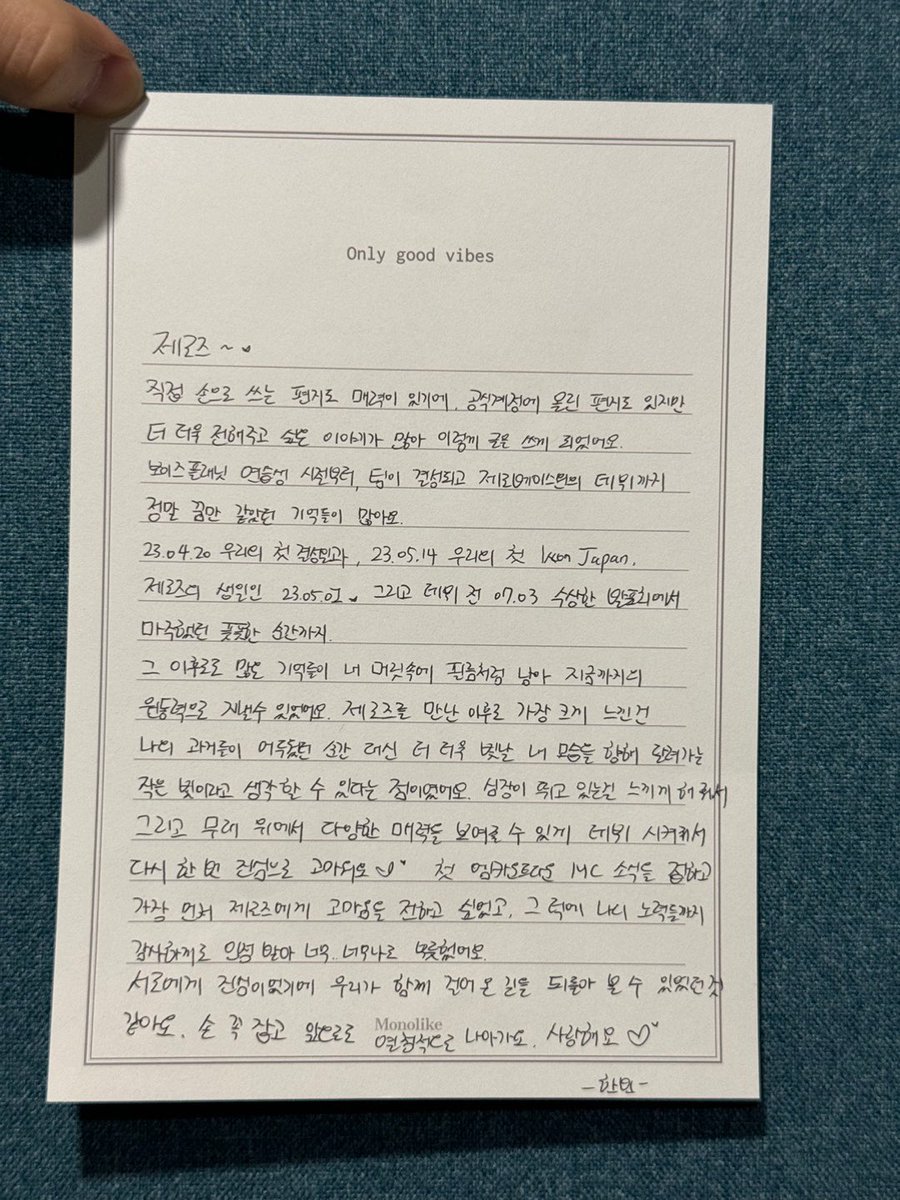 Only good vibes
제로즈 ~
직접 손으로 쓰는 편지도 매력이 있기에, 공식계정에 올린 편지도 있지만
더 더욱 전해주고 싶은 이야기가 많아 이렇게 글을 쓰게 되었어요.
보이즈플래닛 연습생 시절부터, 팀이 결성되고 제로베이스원의 데뷔까지
정말 꿈만 같았던 기억들이 많아요.
23.04.20 우리의 첫 결성일과, 23.05.14 우리의 첫 Kcon Japan,
제로즈의 생일인 23.05.01 그리고 데뷔 전 07.03 수상한 발표회에서
마주했던 풋풋한 순간까지.
그 이후로도 많은 기억들이 내 머릿속에 필름처럼 남아 지금까지의
원동력으로 지낼 수 있었어요. 제로즈를 만난 이후로 가장 크게 느낀건
나의 과거들이 어두웠던 순간 대신 더 더욱 빛날 내 모습을 향해 달려가는
작은 빛이라고 생각할 수 있다는 점이였어요. 심장이 뛰고 있는걸 느끼게 해 줘서
그리고 무대 위에서 다양한 매력을 보여줄 수 있게 데뷔 시켜줘서
다시 한 번 진심으로 고마워요♡ 첫 엠카운트다운 MC 소식을 접하고
가장 먼저 제로즈에게 고마움을 전하고 싶었고, 그 덕에 나의 노력들까지
감사하게도 인정 받아 너무.. 너무나도 뿌듯했어요.
서로에게 진심이였기에 우리가 함께 걸어온 길을 되돌아 볼 수 있었던것
같아요. 손 꼭 잡고 앞으로도 열정적으로 나아가요. 사랑해요♡
Monolike
-한빈-